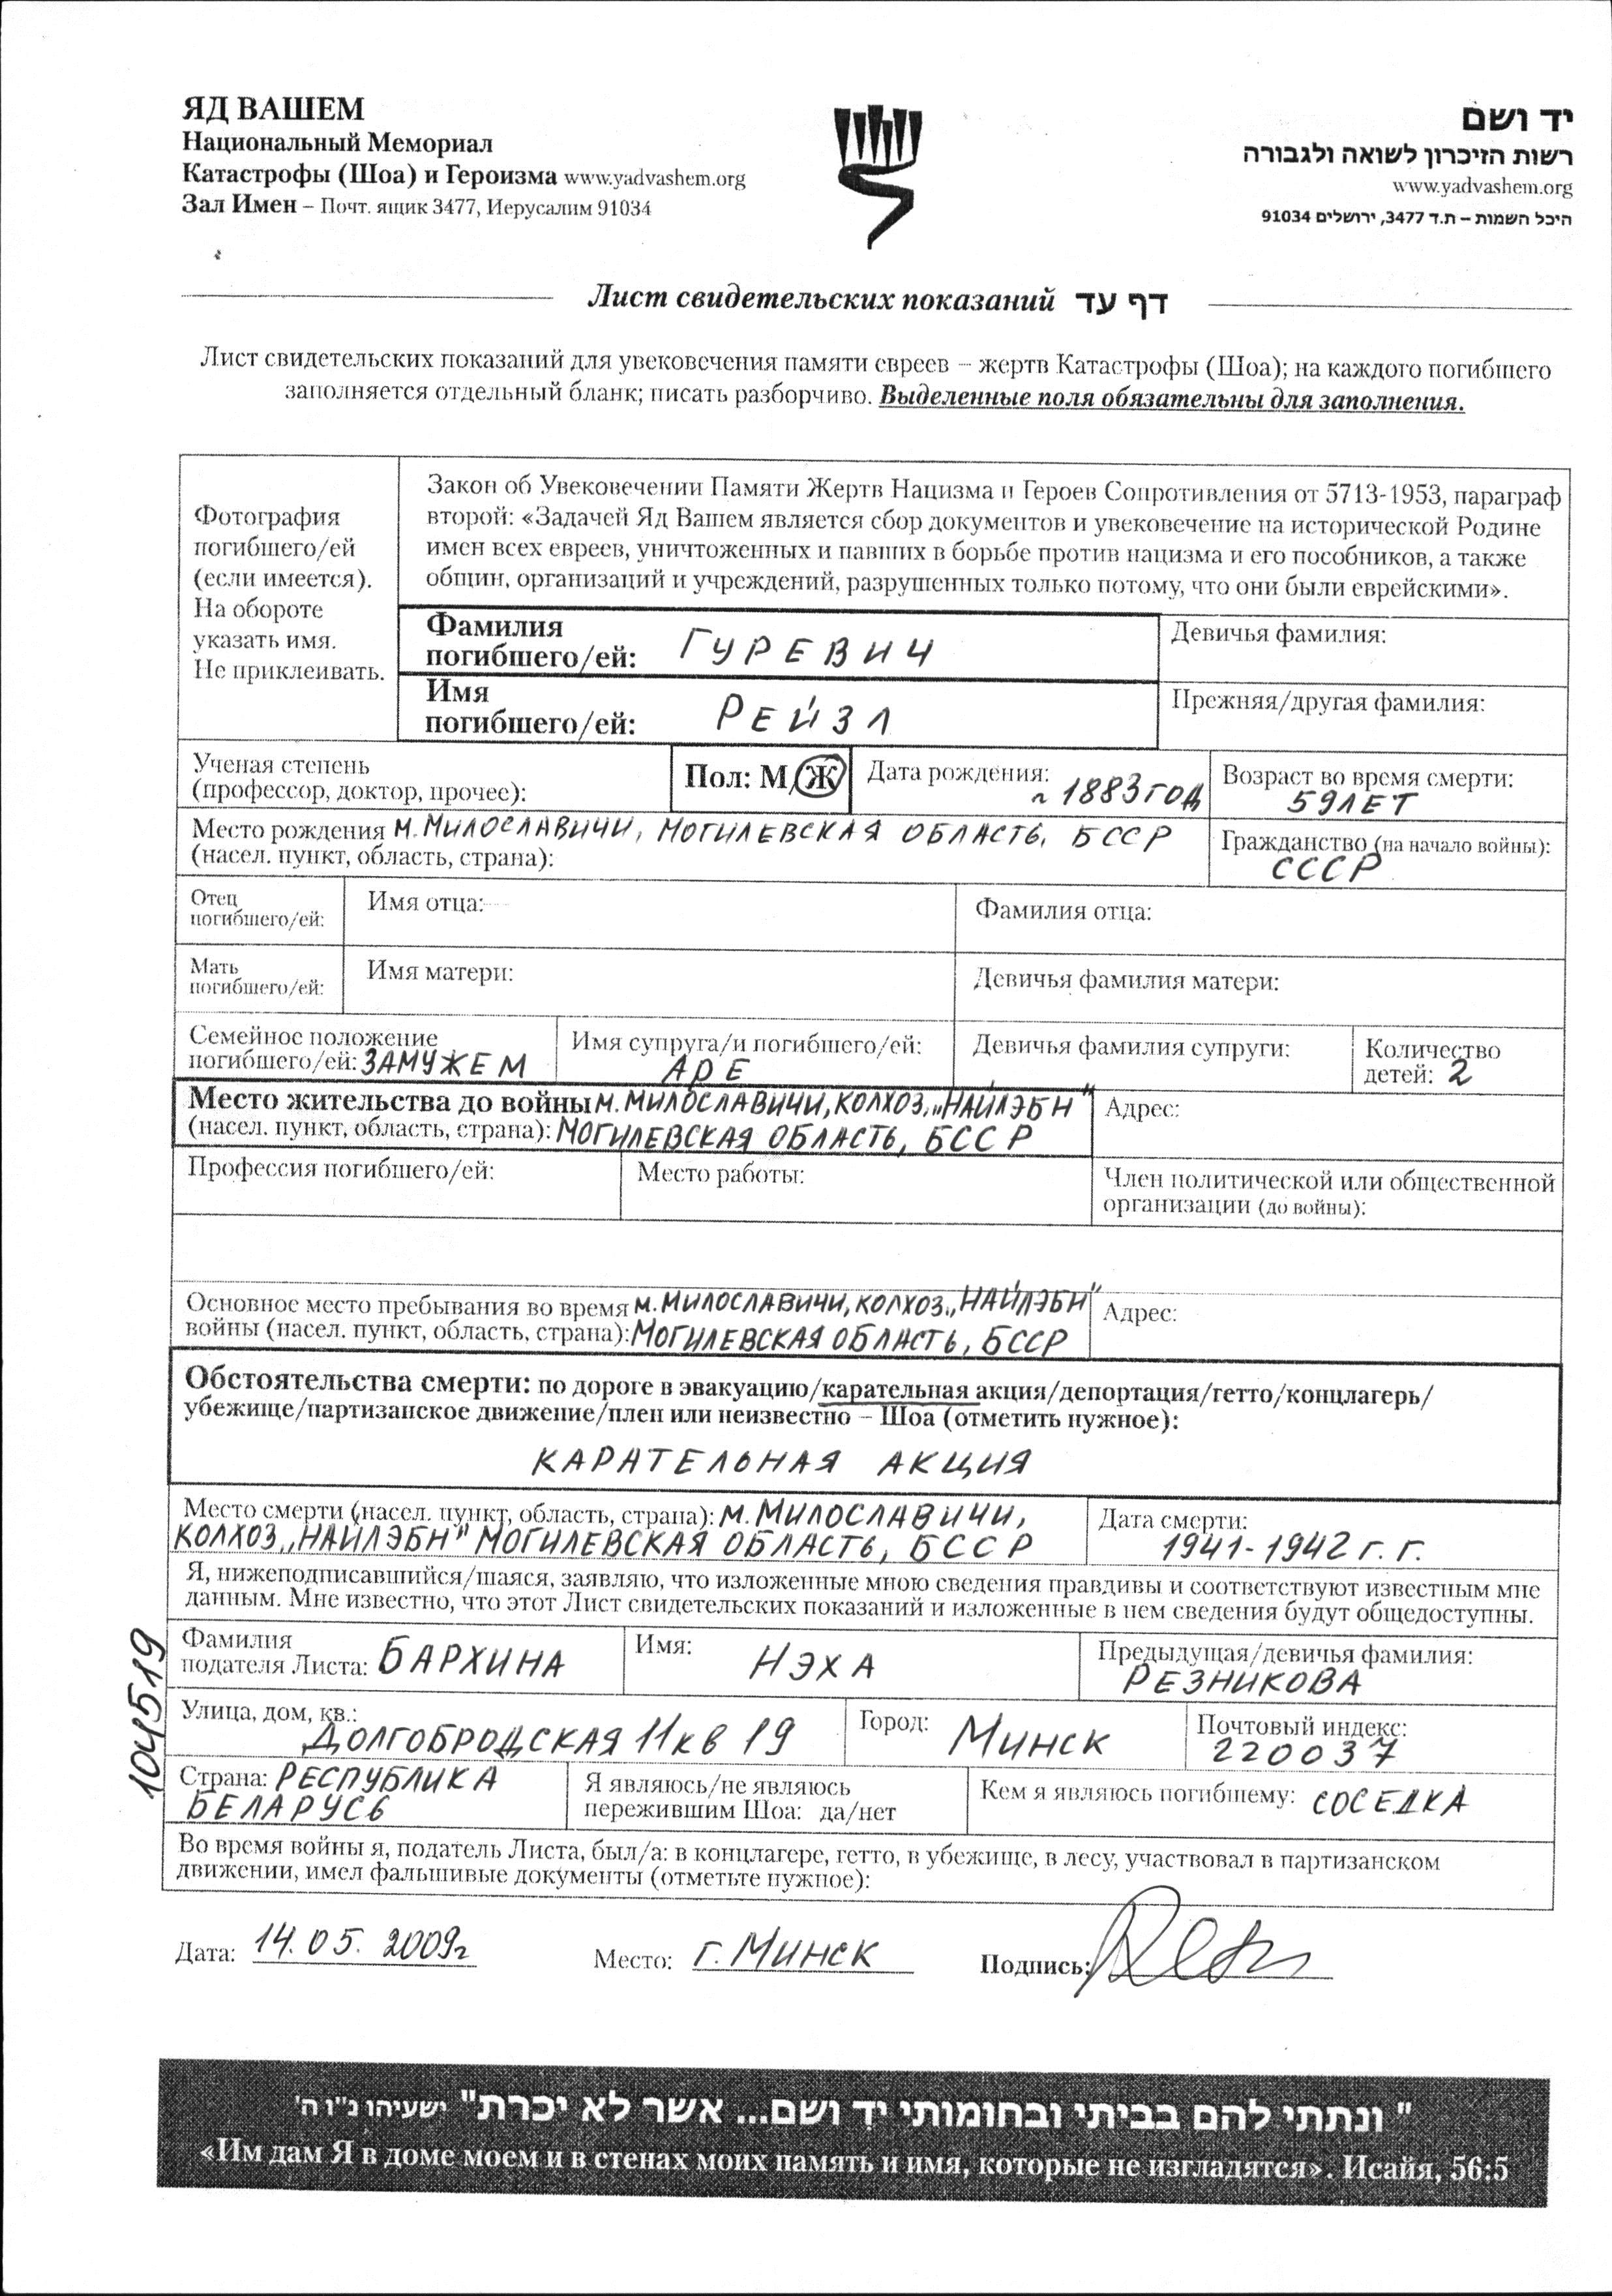 ЯД ВАШЕМ
Национальный Мемориал
Катастрофы (Шоа) и Героизма www.yadvashem.org
Зал Имен – Почт. ящик 3477, Иерусалим 91034
יד ושם
רשות הזיכרון לשואה ולגבורה
www.yadvashem.org
היכל השמות – ת.ד 3477, ירושלים 91034
Лист свидетельских показаний דף עד
Лист свидетельских показаний для увековечения памяти евреев – жертв Катастрофы (Шоа); на каждого погибшего
заполняется отдельный бланк; писать разборчиво. Выделенные поля обязательны для заполнения.
Фотография
погибшего/ей
(если имеется).
На обороте
указать имя.
Не приклеивать.
Закон об Увековечении Памяти Жертв Нацизма и Героев Сопротивления от 5713-1953, параграф
второй: «Задачей Яд Вашем является сбор документов и увековечение на исторической Родине
имен всех евреев, уничтоженных и павших в борьбе против нацизма и его пособников, а также
общин, организаций и учреждений, разрушенных только потому, что они были еврейскими».
Фамилия
погибшего/ей: ГУРЕВИЧ
Девичья фамилия:
Имя
погибшего/ей: РЕЙЗЛ
Прежняя/другая фамилия:
Ученая степень
(профессор, доктор, прочее):
Пол: М/Ж
Дата рождения:
~ 1883 ГОД
Возраст во время смерти:
59 ЛЕТ
Место рождения М. МИЛОСЛАВИЧИ, МОГИЛЕВСКАЯ ОБЛАСТЬ, БССР
(насел. пункт, область, страна):
Гражданство (на начало войны):
СССР
Отец
погибшего/ей:
Имя отца:
Фамилия отца:
Мать
погибшего/ей:
Имя матери:
Девичья фамилия матери:
Семейное положение
погибшего/ей: ЗАМУЖЕМ
Имя супруга/и погибшего/ей:
АРЕ
Девичья фамилия супруги:
Количество
детей: 2
Место жительства до войны М. МИЛОСЛАВИЧИ, КОЛХОЗ „НАЙЛЭБН"
(насел. пункт, область, страна): МОГИЛЕВСКАЯ ОБЛАСТЬ, БССР
Адрес:
Профессия погибшего/ей:
Место работы:
Член политической или общественной
организации (до войны):
Основное место пребывания во время М. МИЛОСЛАВИЧИ, КОЛХОЗ „НАЙЛЭБН"
войны (насел. пункт, область, страна): МОГИЛЕВСКАЯ ОБЛАСТЬ, БССР
Адрес:
Обстоятельства смерти: по дороге в эвакуацию/карательная акция/депортация/гетто/концлагерь/
убежище/партизанское движение/плен или неизвестно – Шоа (отметить нужное):
КАРАТЕЛЬНАЯ АКЦИЯ
Место смерти (насел. пункт, область, страна): М. МИЛОСЛАВИЧИ,
КОЛХОЗ „НАЙЛЭБН" МОГИЛЕВСКАЯ ОБЛАСТЬ, БССР
Дата смерти:
1941-1942 г. г.
Я, нижеподписавшийся/шаяся, заявляю, что изложенные мною сведения правдивы и соответствуют известным мне
данным. Мне известно, что этот Лист свидетельских показаний и изложенные в нем сведения будут общедоступны.
Фамилия
подателя Листа: БАРХИНА
Имя: НЭХА
Предыдущая/девичья фамилия:
РЕЗНИКОВА
Улица, дом, кв.:
ДОЛГОБРОДСКАЯ 11 кв 19
Город: МИНСК
Почтовый индекс:
220037
Страна: РЕСПУБЛИКА
БЕЛАРУСЬ
Я являюсь/не являюсь
пережившим Шоа: да/нет
Кем я являюсь погибшему: СОСЕДКА
Во время войны я, податель Листа, был/а: в концлагере, гетто, в убежище, в лесу, участвовал в партизанском
движении, имел фальшивые документы (отметьте нужное):
104519
Дата: 14. 05. 2009г
Место: г. МИНСК
Подпись:
"ונתתי להם בביתי ובחומותי יד ושם... אשר לא יכרת" ישעיהו נ"ו ה'
«Им дам Я в доме моем и в стенах моих память и имя, которые не изгладятся». Исайя, 56:5